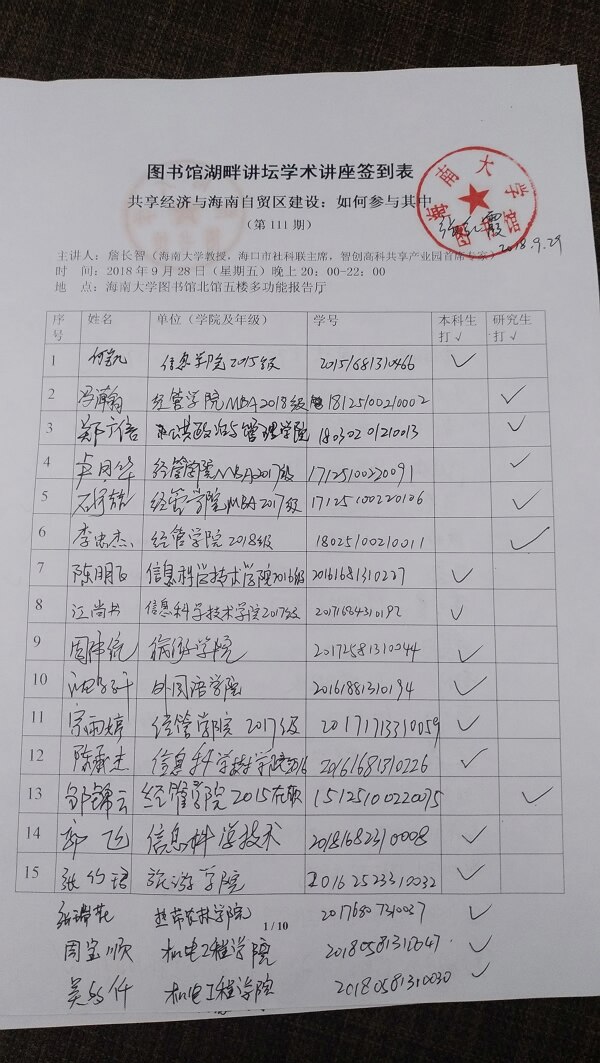 图书馆湖畔讲坛学术讲座签到表
共享经济与海南自贸区建设：如何参与其中
（第 111 期）
海南大学
2018.9.29
主讲人：詹长智（海南大学教授，海口市社科联主席，智创高科共享产业园首席专家）
时 间：2018 年 9 月 28 日（星期五）晚上 20：00-22：00
地 点：海南大学图书馆北馆五楼多功能报告厅
序号 姓名 单位（学院及年级） 学号 本科生打√ 研究生打√
1 何凯 信息学院2015级 20151681310466 √
2 冯瀚 经管学院MBA2018级 18125100210002 √
3 郑广信 政治与管理学院 18030201210013 √
4 经管学院MBA2017级 17125100220091 √
5 经管学院MBA2017级 17125100220106 √
6 李忠杰 经管学院2018级 18025100210011 √
7 陈明飞 信息科学技术学院2016级 20161681310227 √
8 江尚书 信息科学技术学院2017级 √
9 周伟 学院 20172581310044 √
10 外国语学院 20161881310194 √
11 宋雨婷 经管学院 2017级 20171713310059 √
12 陈承杰 信息科学技术学院2016 20161681310226 √
13 邹锦云 经管学院2015在职 15125100220075 √
14 郭飞 信息科学技术 20181682310008 √
15 张竹珺 旅游学院 20162523310032 √
热带农林学院 √
1 / 10
周宝顺 机电工程学院 20180581310047 √
吴 仟 机电工程学院 20180581310030 √